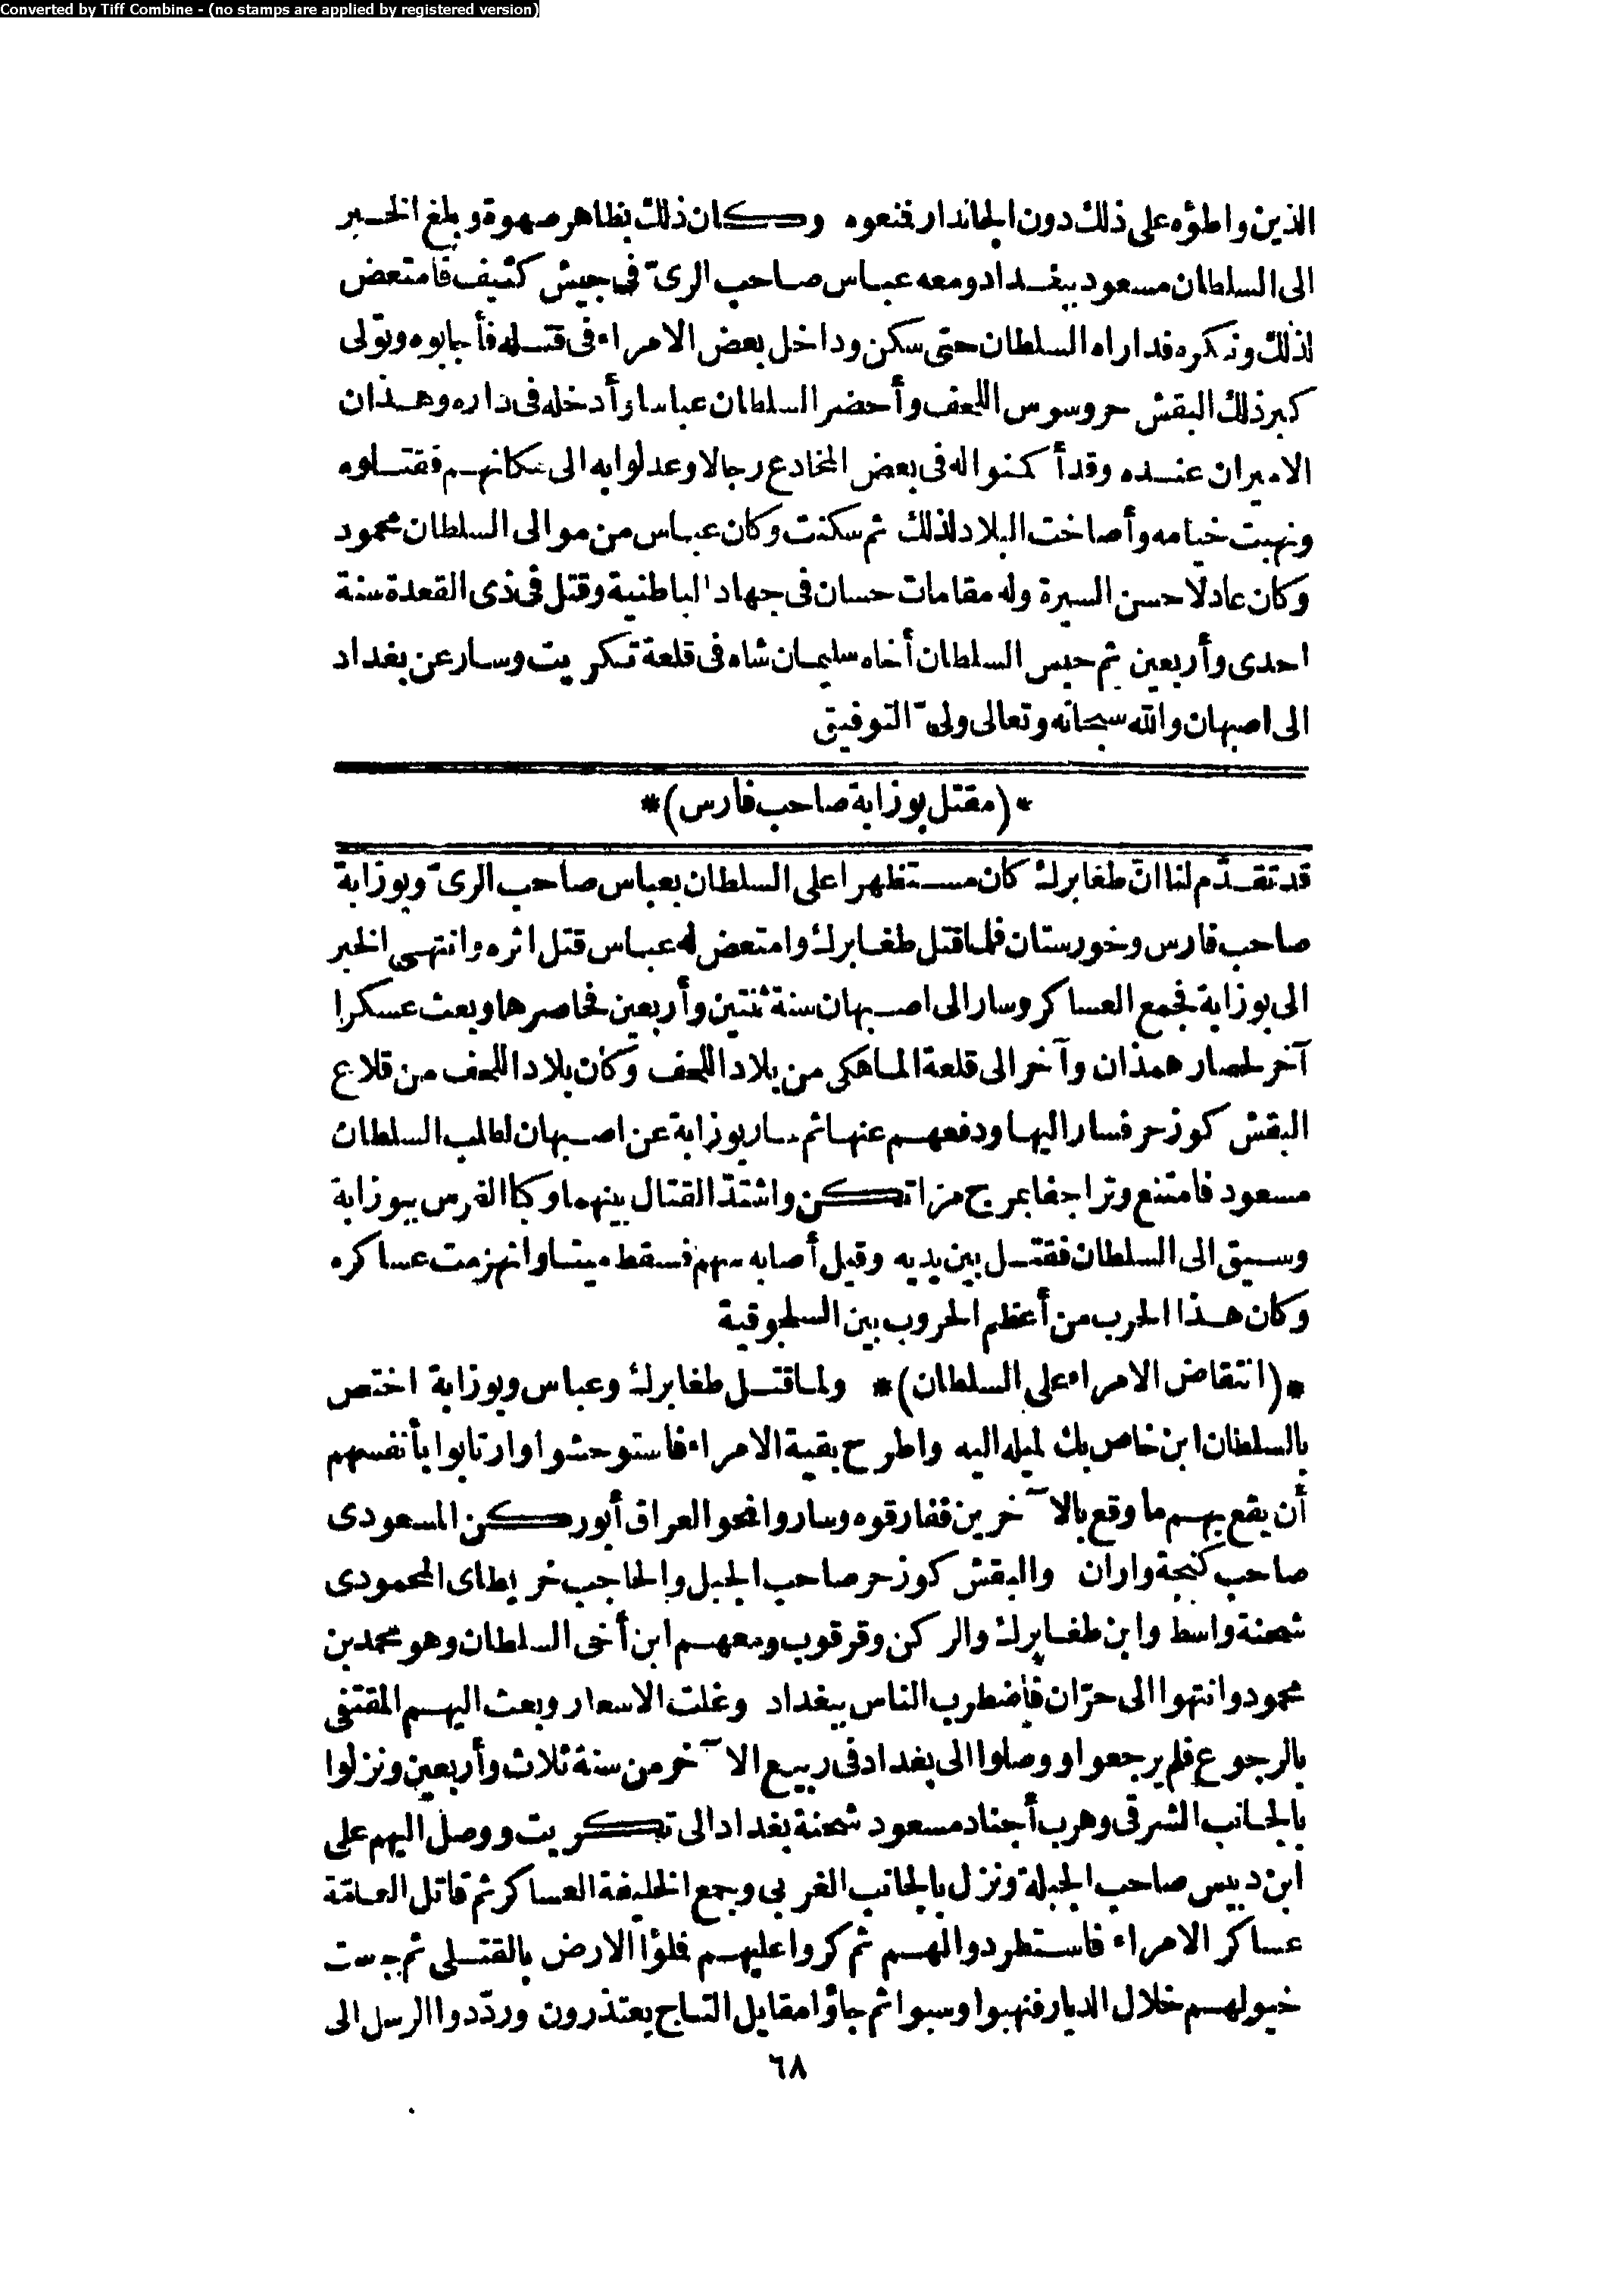 Converted by Tiff Combine - (no stamps are applied by registered version)
الذين واطؤه على ذلك دون الجاندار فمنعوه وكان ذلك بظاهر صهوة وبلغ الخبر
الى السلطان مسعود ببغداد ومعه عباس صاحب الرىّ فى جيش كثيف فامتعض
لذلك ونكره فداراه السلطان حتى سكن وداخل بعض الامراء فى قتله فأجابوه وتولى
كبر ذلك البقش حروسوس اللحف وأحضر السلطان عباسا وأدخله فى داره وهذان
الاميران عنده وقد أكمنوا له فى بعض المخادع رجالا وعدلوا به الى مكانهم فقتلوه
ونهبت خيامه وأصاخت البلاد لذلك ثم سكنت وكان عباس من موالى السلطان محمود
وكان عادلا حسن السيرة وله مقامات حسان فى جهاد الباطنية وقتل فى ذى القعدة سنة
احدى وأربعين ثم حبس السلطان أخاه سليمان شاه فى قلعة تكريت وسار عن بغداد
الى اصبهان والله سبحانه وتعالى ولىّ التوفيق
*(مقتل بوزابة صاحب فارس)*
قد تقدّم لنا انّ طغابرك كان مستظهرا على السلطان بعباس صاحب الرىّ وبوزابة
صاحب فارس وخورستان فلما قتل طغابرك وامتعض له عباس قتل اثره وانتهى الخبر
الى بوزابة فجمع العساكر وسار الى اصبهان سنة ثنتين وأربعين فحاصرها وبعث عسكرا
آخر لحصار همذان وآخر الى قلعة الماهكى من بلاد اللحف وكان بلاد اللحف من قلاع
البقش كوزحر فسار اليها ودفعهم عنها ثم سار بوزابة عن اصبهان لطلب السلطان
مسعود فامتنع وتراجفا بمرج مراتكن واشتدّ القتال بينهما وكبا الفرس ببوزابة
وسيق الى السلطان فقتل بين يديه وقيل أصابه سهم فسقط ميتا وانهزمت عساكره
وكان هذا الحرب من أعظم الحروب بين السلجوقية
*(انتقاض الامراء على السلطان)* ولما قتل طغابرك وعباس وبوزابة اختص
بالسلطان ابن خاص بك لميله اليه واطرح بقية الامراء فاستوحشوا وارتابوا بأنفسهم
أن يقع بهم ما وقع بالآخرين ففارقوه وساروا نحو العراق أبوركن المسعودى
صاحب كنجة واران والبقش كوزحر صاحب الجبل والحاجب خريطاى المحمودى
شحنة واسط وابن طغابرك والركن وقرقوب ومعهم ابن أخى السلطان وهو محمد بن
محمود وانتهوا الى حرّان فاضطرب الناس ببغداد وغلت الاسعار وبعث اليهم المقتفى
بالرجوع فلم يرجعوا ووصلوا الى بغداد فى ربيع الآخر من سنة ثلاث وأربعين ونزلوا
بالجانب الشرقى وهرب أجناد مسعود شحنة بغداد الى تكريت ووصل اليهم على
ابن دبيس صاحب الجبلة ونزل بالجانب الغربى وجمع الخليفة العساكر ثم قاتل العامّة
عساكر الامراء فاستطردوا لهم ثم كروا عليهم فلؤا الارض بالقتلى ثم جست
خيولهم خلال الديار فنهبوا وسبوا ثم جاؤا مقابل التاج يعتذرون وردّدوا الرسل الى
٦٨